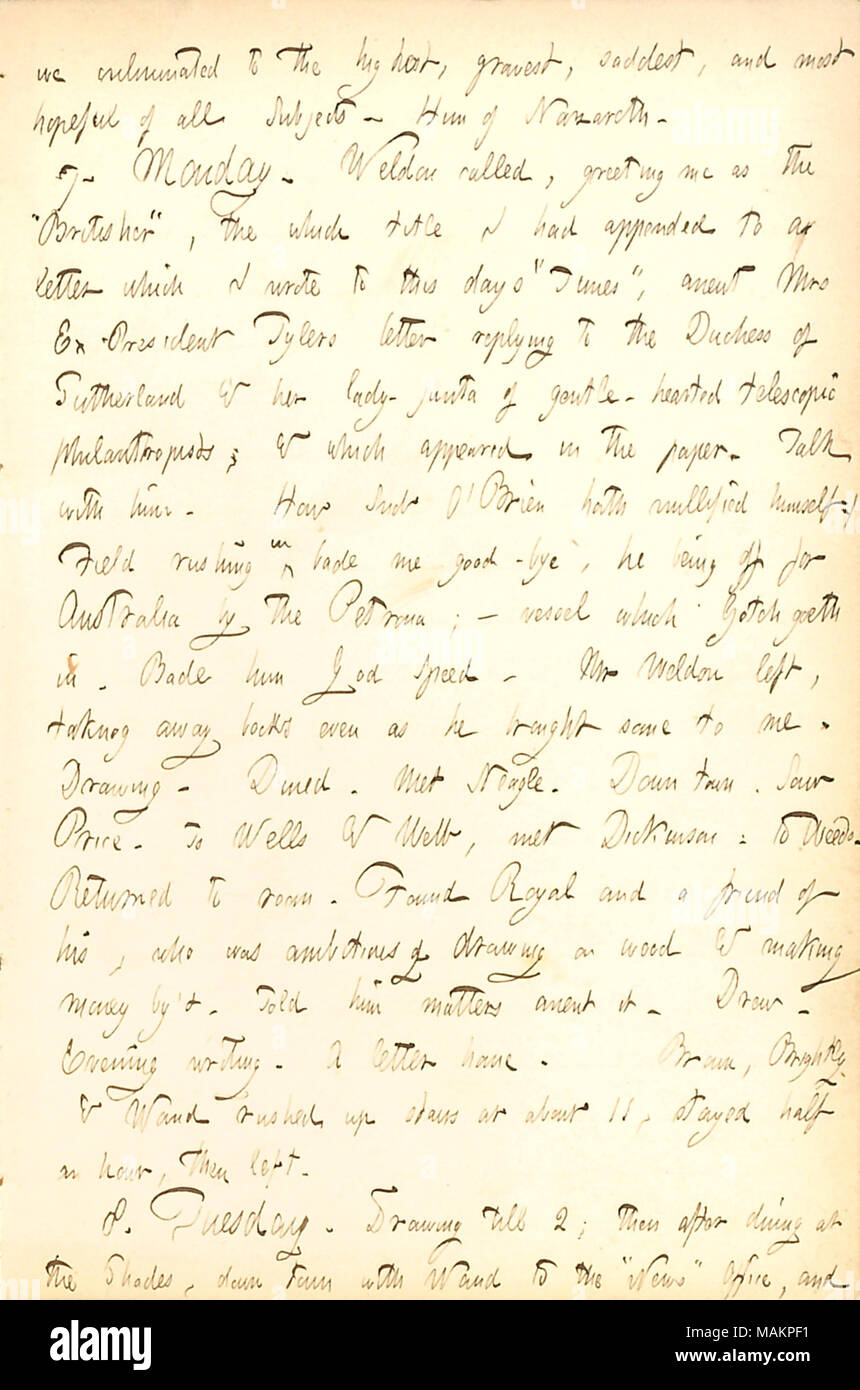 we culminated to the highest, gravest, saddest, and most
hopeful of all Subjects — Him of Nazareth —
7. Monday. Weldon called, greeting me as the
"Britisher", the which title I had appended to a
letter which I wrote to this day's "Times", anent Mrs
Ex-President Tylers letter replying to the Duchess of
Sutherland & her lady-junta of gentle-hearted telescopic
philanthropists; & which appeared in the paper. Talk
with him. How Smith O'Brien hath nullified himself.
Field rushing in bade me good-bye, he being off for
Australia by the Petrona; — vessel which Gotch goeth
in. Bade him God speed — Mr Weldon left,
taking away books even as he brought some to me.
Drawing — Dined. Met Neagle. Down town. Saw
Price. To Wells & Webb, met Dickinson: to Weeds.
Returned to room. Found Royal and a friend of
his, who was ambitious of drawing on wood & making
money by't. Told him matters anent it. Drew.
Evening writing. A letter home. Brown, Brightly
& Waud rushed up stairs at about 11, stayed half
an hour, then left.
8. Tuesday. Drawing till 2; then after dining at
the Shades, down town with Waud to the "News" Office, and
alamy
Image ID: MAKPF1
www.alamy.com